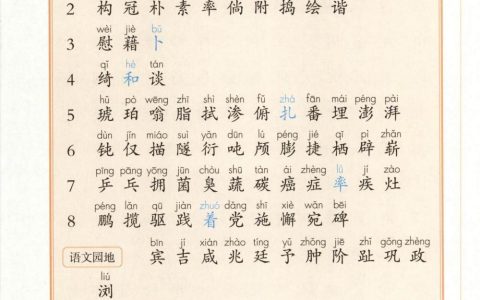 2 构 冠 朴 素 率 倘 附 捣 绘 谐
wèi jiè bǔ
3 慰 藉 卜
qǐ hè tán
4 绮 和 谈
hǔ pò wēng zhī shì shèn fǔ zhá fān mái péng pài
5 琥 珀 嗡 脂 拭 渗 俯 扎 番 埋 澎 湃
dùn jǐn miáo suì yǎn dūn lú péng jié qī pì zhǎn
6 钝 仅 描 隧 衍 吨 颅 膨 捷 栖 辟 崭
pīng pāng yōng jūn chòu shū tàn ái zhèng lǜ jí zào
7 乒 乓 拥 菌 臭 蔬 碳 癌 症 率 疾 灶
péng lǎn qū jiàn zhuó dǎng shī xiè wǎn bēi
8 鹏 揽 驱 践 着 党 施 懈 宛 碑
bīn jí xián zhào tíng yǔ zhǒng jiē zhǐ gǒng zhèng
语文园地 宾 吉 咸 兆 廷 予 肿 阶 趾 巩 政
liú
浏